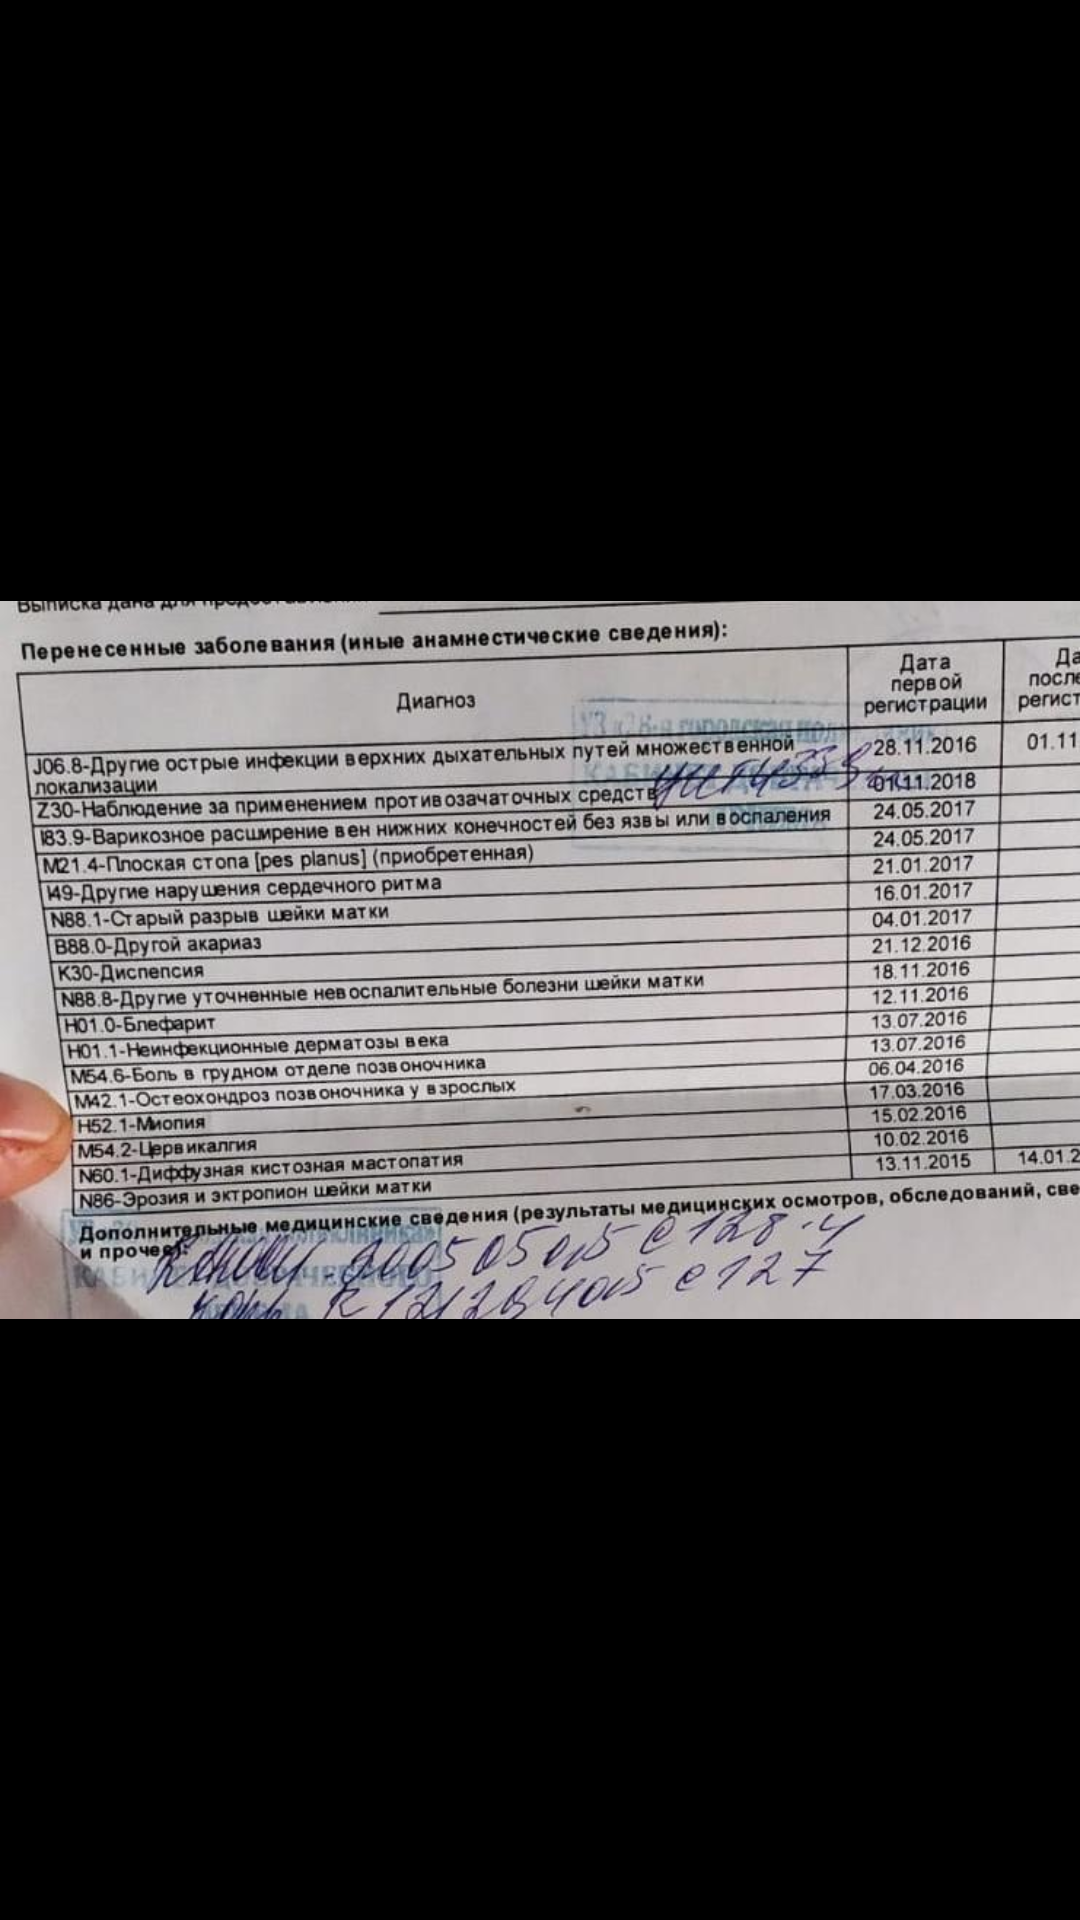 Выписка дана для предоставления
Перенесенные заболевания (иные анамнестические сведения):
Диагноз
Дата первой регистрации
J06.8-Другие острые инфекции верхних дыхательных путей множественной локализации 28.11.2016 01.11
Z30-Наблюдение за применением противозачаточных средств 01.11.2018
I83.9-Варикозное расширение вен нижних конечностей без язвы или воспаления 24.05.2017
M21.4-Плоская стопа [pes planus] (приобретенная) 24.05.2017
I49-Другие нарушения сердечного ритма 21.01.2017
N88.1-Старый разрыв шейки матки 16.01.2017
B88.0-Другой акариаз 04.01.2017
K30-Диспепсия 21.12.2016
N88.8-Другие уточненные невоспалительные болезни шейки матки 18.11.2016
H01.0-Блефарит 12.11.2016
H01.1-Неинфекционные дерматозы века 13.07.2016
M54.6-Боль в грудном отделе позвоночника 13.07.2016
M42.1-Остеохондроз позвоночника у взрослых 06.04.2016
H52.1-Миопия 17.03.2016
M54.2-Цервикалгия 15.02.2016
N60.1-Диффузная кистозная мастопатия 10.02.2016
N86-Эрозия и эктропион шейки матки 13.11.2015 14.01.2
Дополнительные медицинские сведения (результаты медицинских осмотров, обследований, све
и прочее):